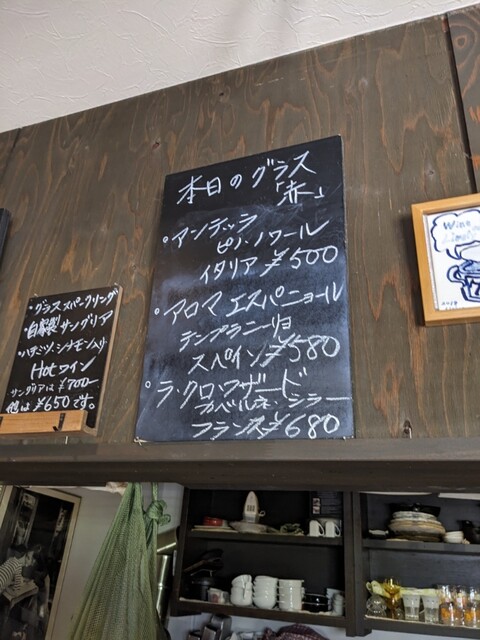 本日のグラス
「赤」
・アンデッラ
ピノ・ノワール
イタリア ¥500
・アロマ エスパニョール
テンプラニーリョ
スペイン ¥580
・ラ・クロワザード
カベルネ・シラー
フランス ¥680
・グラススパークリング
・自家製サングリア
・ハチミツ、シナモン入り
Hotワイン
サングリアは¥700-
他は¥650です。
Wine
2018